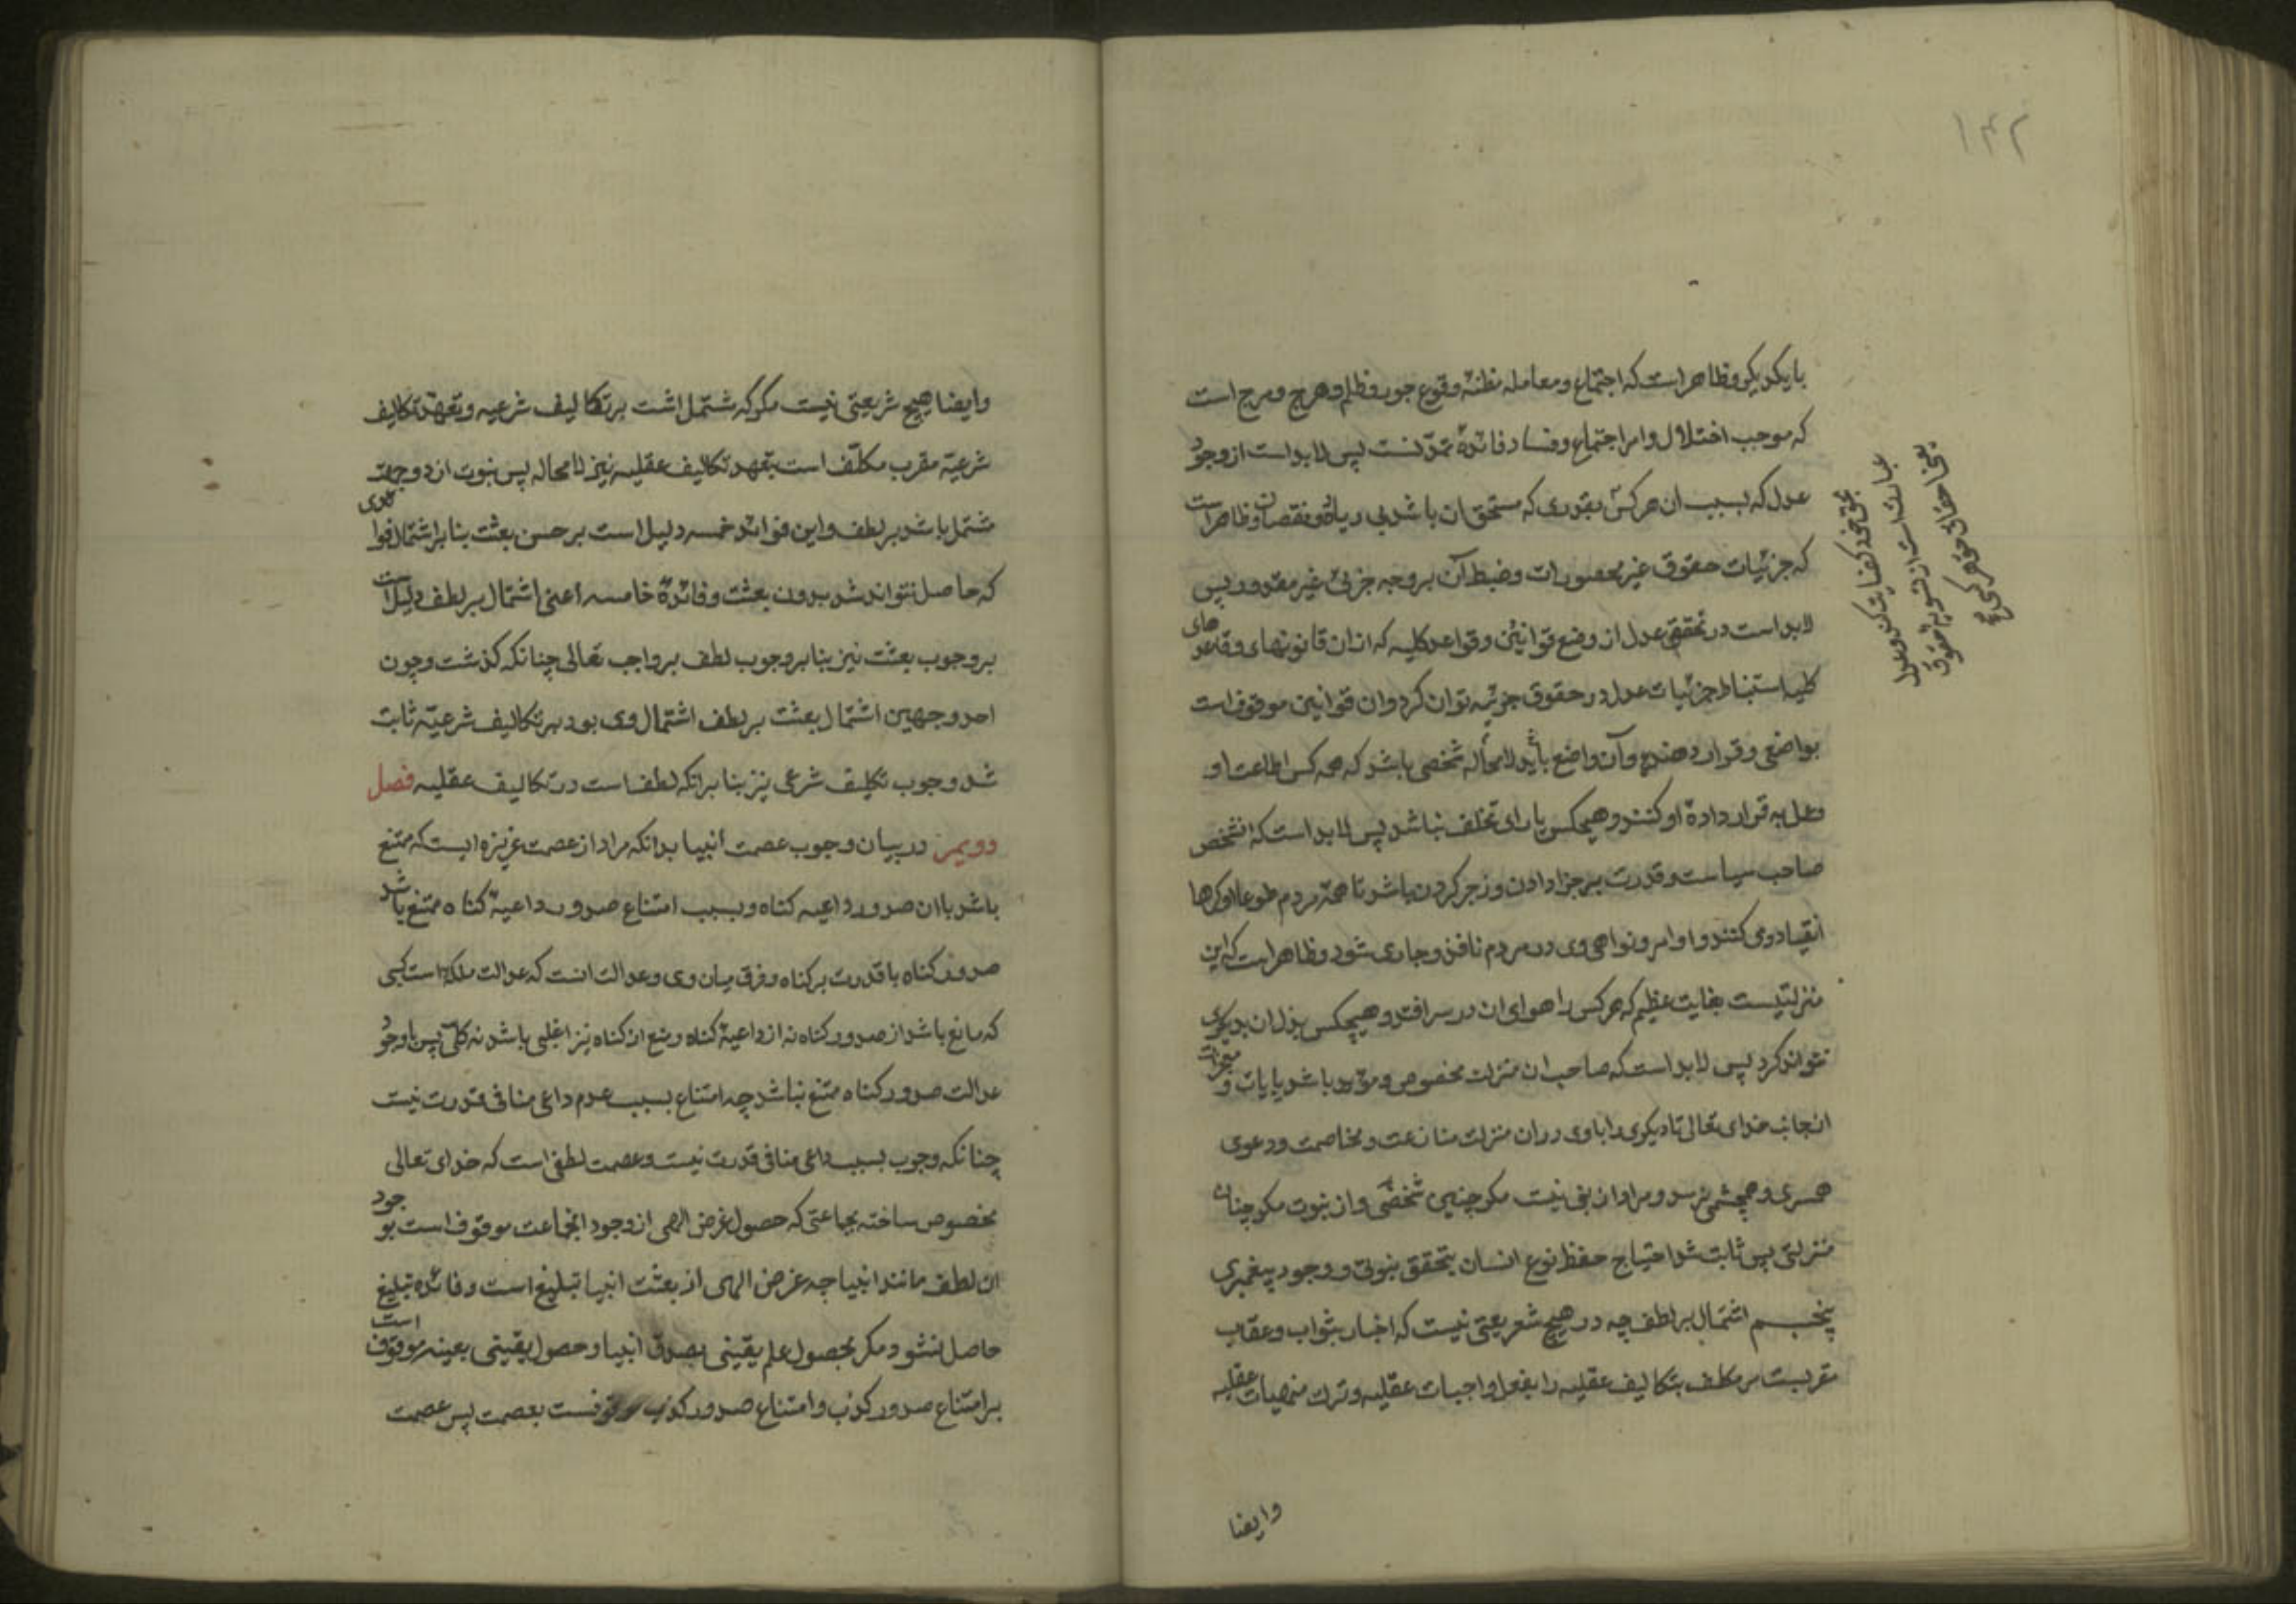 ۱۴۲
بایکدیگر و ظاهر است که اجتماع و معامله مظنهٔ وقوع جور و ظلم و هرج و مرج است
که موجب اختلال و امر اجتماع و فساد فائدهٔ تمدّنست پس لابد است از وجود
عدل که بسبب ان هر کس بقدری که مستحق ان باشد بی زیاده و نقصان و ظاهر است
که جزئیات حقوق غیر محصور است و ضبط آن بر وجه جزئی غیر مقدور پس
لابد است در تحقق عدل از وضع قوانین و قواعد کلیه که از ان قانونهای و قاعدهای
کلیه استنباط جزئیات عدل در حقوق جزئیه توان کرد و ان قوانین موقوف است
بواضعی و قرار دهندهٔ و آن واضع باید لامحاله شخصی باشد که همه کس اطاعت او
و عمل به قرار دادهٔ او کنند و هیچکس یارای تخلف نباشد پس لابد است که انشخص
صاحب سیاست و قدرت بر جزا دادن و زجر کردن باشد تا همهٔ مردم طوعا او کرها
انقیاد وی کنند و اوامر و نواهی وی در مردم نافذ و جاری شود و ظاهر است که این
منزلتیست بغایت عظیم که هر کس را هوای ان در سر افتد و هیچکس بذل ان بدیگری
نتواند کرد پس لابد است که صاحب ان منزلت مخصوص و مؤید باشد بایات و معجزات
از جانب خدای تعالی تا دیگری را با وی در ان منزلت منازعت و مخاصمت و دعوی
همسری و همچشمی نرسد و مراد از نبی نیست مگر چنین شخصی و از نبوت مگر چنان
منزلتی پس ثابت شد احتیاج حفظ نوع انسان بتحقق نبوتی و وجود پیغمبری
پنجم اشتمال بر لطف چه در هیچ شریعتی نیست که اخبار بثواب و عقاب
مقربست مر مکلف بتکالیف عقلیه را بفعل واجبات عقلیه و ترک منهیات عقلیه
وایضا
بحق خود کفایت کن و عدل
عبارتست از تسویهٔ حقوق
وایضا هیچ شریعتی نیست مگر که مشتمل اشت بر تکالیف شرعیه و تعهد تکالیف
شرعیه مقرب مکلّف است بتعهد تکالیف عقلیه نیز لامحاله پس نبوت از دو جهت
مشتمل باشد بر لطف و این فوائد خمسه دلیل است بر حسن بعثت بنا بر اشتمال فوائدی
که حاصل نتواند شد بدون بعثت و فائدهٔ خامسه اعنی اشتمال بر لطف دلیل است
بر وجوب بعثت نیز بنا بر وجوب لطف بر واجب تعالی چنانکه گذشت و چون
احد وجهین اشتمال بعثت بر لطف اشتمال وی بود بر تکالیف شرعیّه ثابت
شد وجوب تکلیف شرعی نیز بنا بر انکه لطف است در تکالیف عقلیه فصل
دویمر در بیان وجوب عصمت انبیا بدانکه مراد از عصمت غریزه ایست که ممتنع
باشد با ان صدور داعیه کناه و بسبب امتناع صدور داعیهٔ کناه ممتنع باشد
صدور کناه با قدرت بر کناه و فرق میان وی و عدالت انست که عدالت ملکه است کسبی
که مانع باشد از صدور کناه نه از داعیهٔ کناه و منع از کناه نیز اغلبی باشد نه کلی پس با وجود
عدالت صدور کناه ممتنع نباشد چه امتناع بسبب عدم داعی منافی قدرت نیست
چنانکه وجوب بسبب داعی منافی قدرت نیست و عصمت لطفی است که خدای تعالی
مخصوص ساخته بجماعتی که حصول غرض الهی از وجود انجماعت موقوف است بوجود
ان لطف مانند انبیا چه غرض الهی از بعثت انبیا تبلیغ است و فائده تبلیغ
حاصل نشود مگر بحصول علم یقینی بصدق انبیا و حصول یقینی بعینه موقوف است
بر امتناع صدور کذب و امتناع صدور کذب موقوفست بعصمت پس عصمت